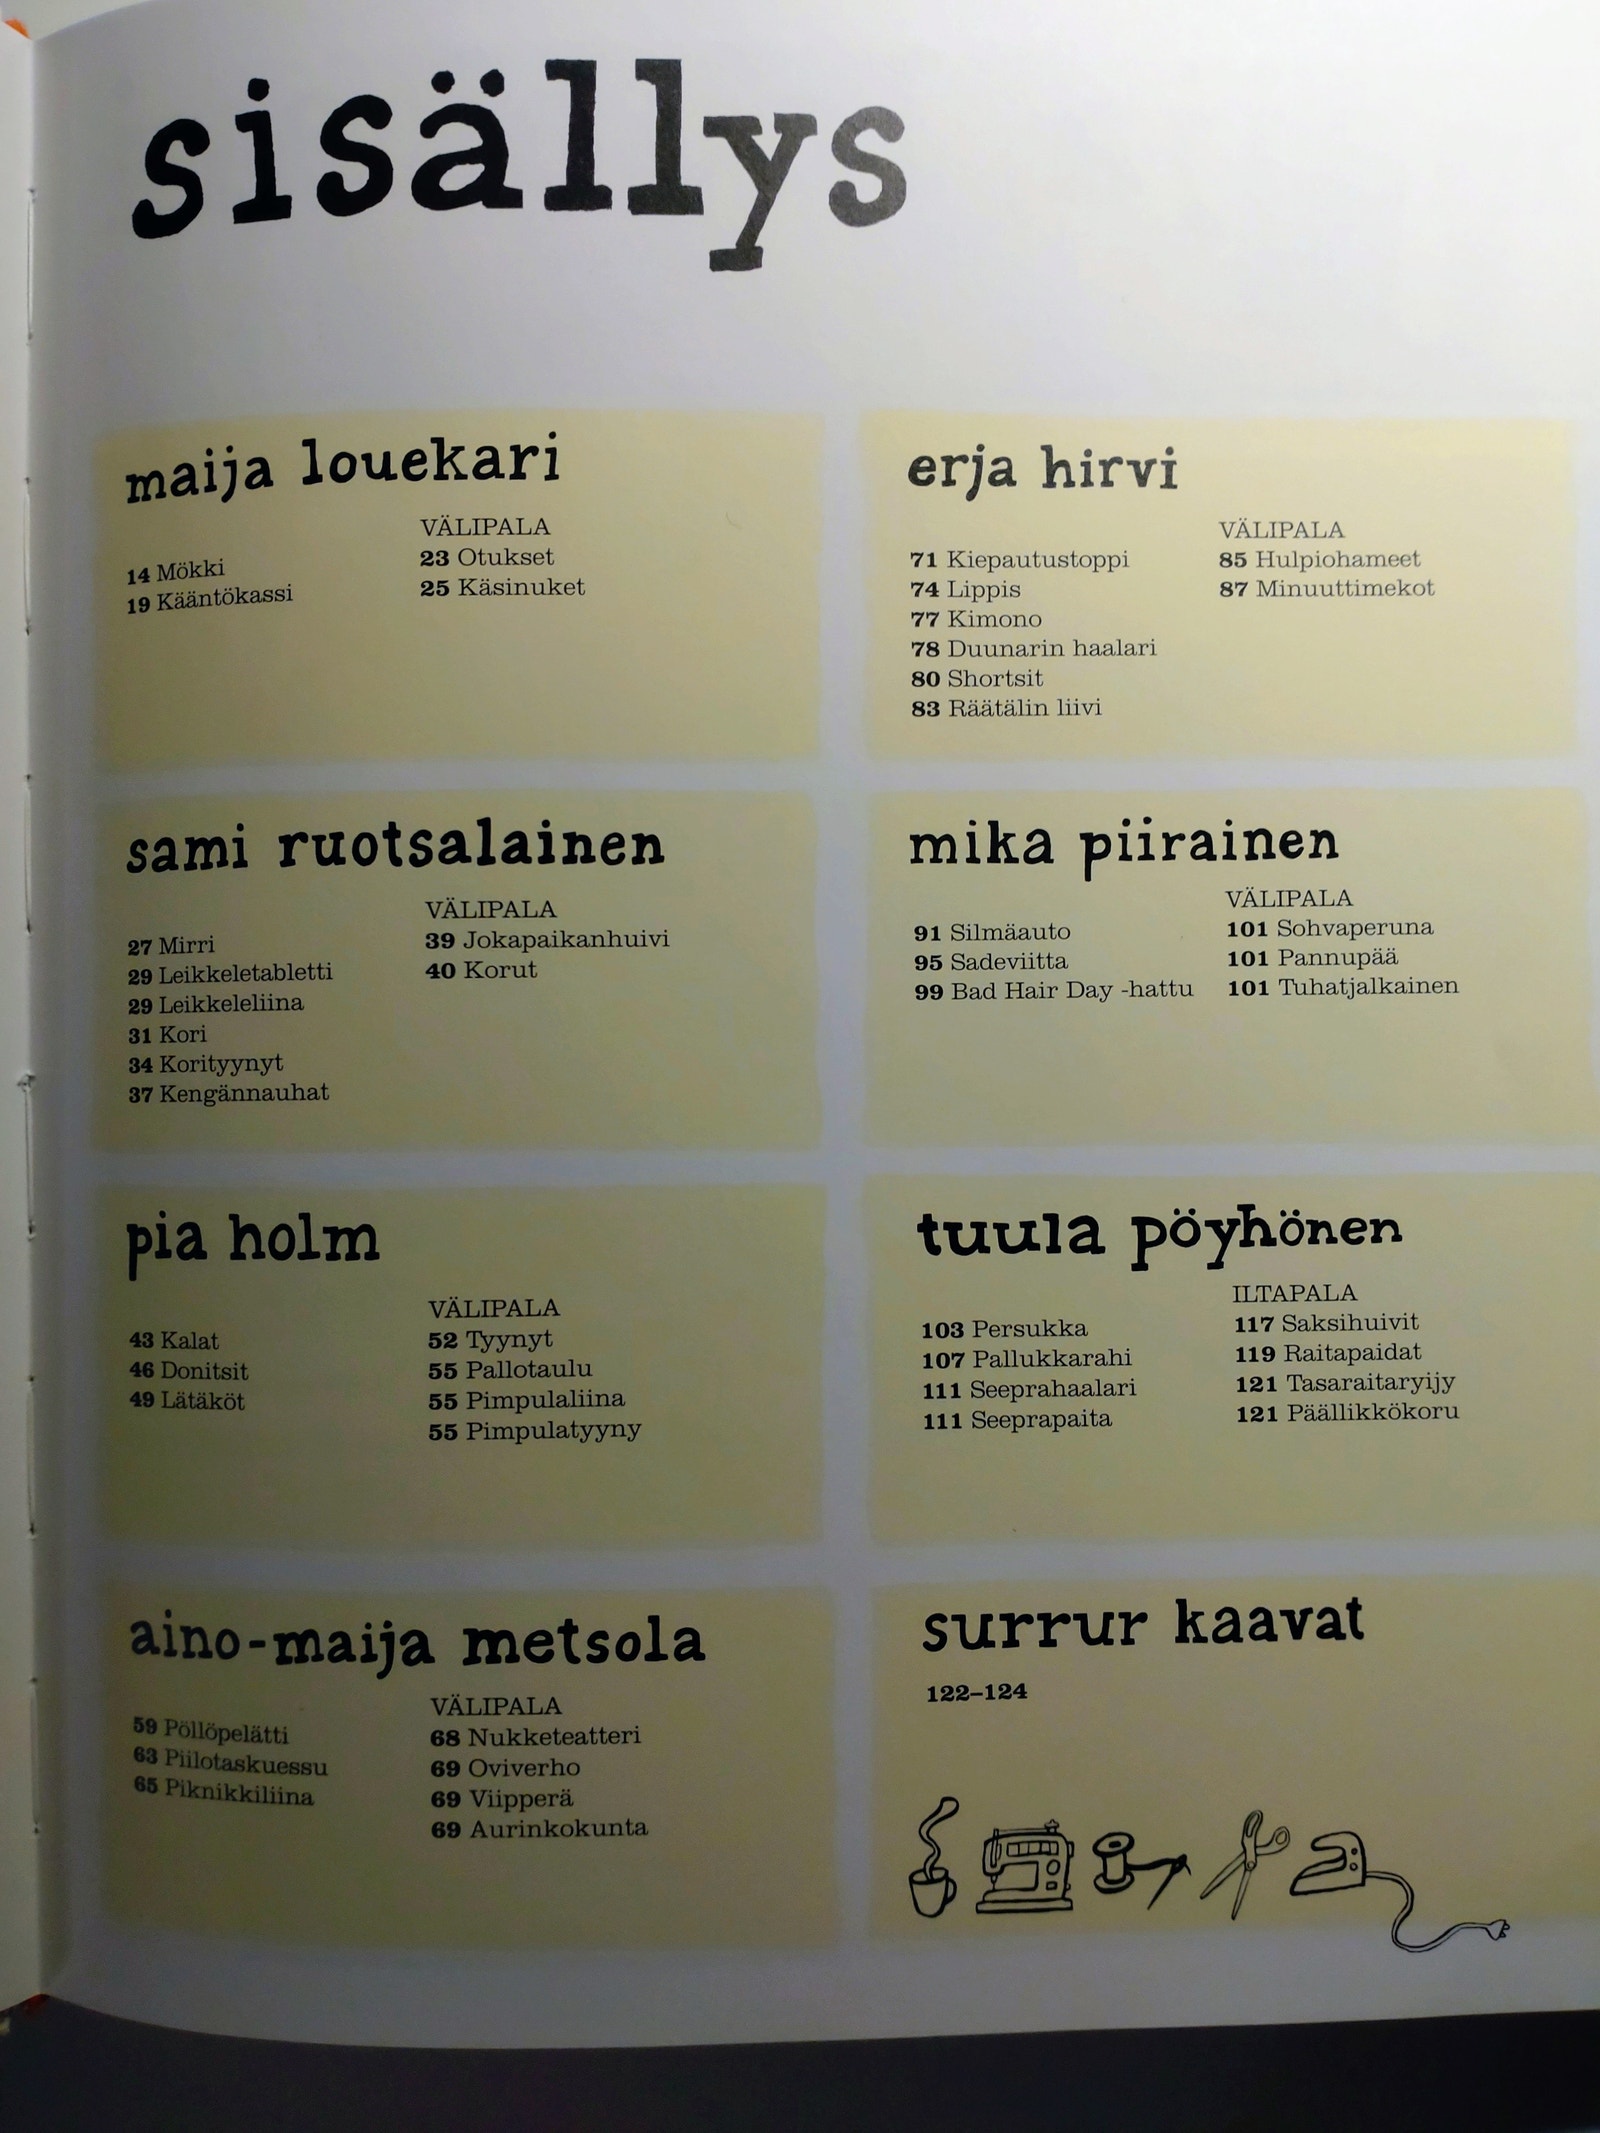 sisällys
maija louekari
14 Mökki
19 Kääntökassi
VÄLIPALA
23 Otukset
25 Käsinuket
sami ruotsalainen
27 Mirri
29 Leikkeletabletti
29 Leikkeleliina
31 Kori
34 Korityynyt
37 Kengännauhat
VÄLIPALA
39 Jokapaikanhuivi
40 Korut
pia holm
43 Kalat
46 Donitsit
49 Lätäköt
VÄLIPALA
52 Tyynyt
55 Pallotaulu
55 Pimpulaliina
55 Pimpulatyyny
aino-maija metsola
59 Pöllöpelätti
63 Piilotaskuessu
65 Piknikkiliina
VÄLIPALA
68 Nukketeatteri
69 Oviverho
69 Viipperä
69 Aurinkokunta
erja hirvi
71 Kiepautustoppi
74 Lippis
77 Kimono
78 Duunarin haalari
80 Shortsit
83 Räätälin liivi
VÄLIPALA
85 Hulpiohameet
87 Minuuttimekot
mika piirainen
91 Silmäauto
95 Sadeviitta
99 Bad Hair Day -hattu
VÄLIPALA
101 Sohvaperuna
101 Pannupää
101 Tuhatjalkainen
tuula pöyhönen
103 Persukka
107 Pallukkarahi
111 Seeprahaalari
111 Seeprapaita
ILTAPALA
117 Saksihuivit
119 Raitapaidat
121 Tasaraitaryijy
121 Päällikkökoru
surrur kaavat
122–124